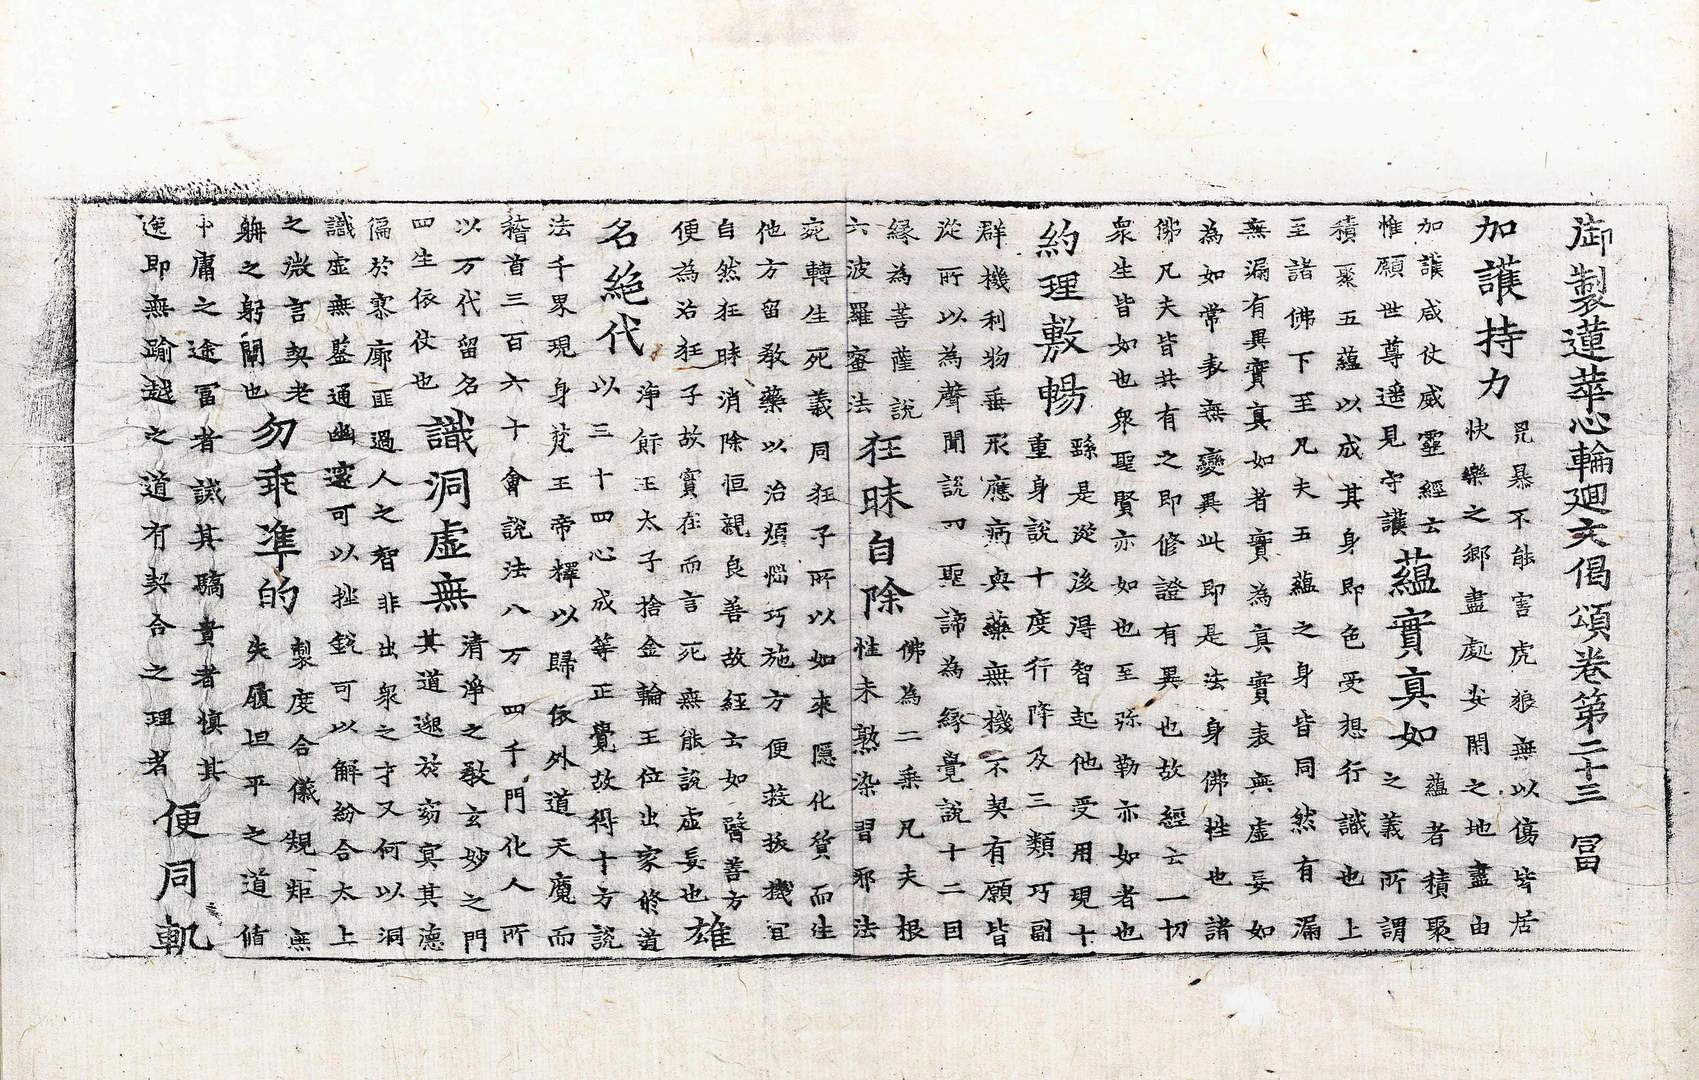 御製蓮華心輪廻文偈頌卷第二十三 冨
加護持力
兕暴不能害虎狼無以傷皆居
快樂之鄉盡處安閑之地盡由
加護咸仗威靈經云
惟願世尊遥見守護
蘊實真如
蘊者積聚
之義所謂
積聚五蘊以成其身即色受想行識也上
至諸佛下至凡夫五蘊之身皆同然有漏
無漏有異實真如者實為真實表無虛妄如
為如常表無變異此即是法身佛性也諸
佛凡夫皆共有之即修證有異也故經云一切
衆生皆如也衆聖賢亦如也至弥勒亦如者也
約理敷暢
繇是從後得智起他受用現十
重身說十度行降及三類巧副
群機利物垂形應病與藥無機不契有願皆
從所以為聲聞說四聖諦為緣覺說十二因
緣為菩薩說
六波羅蜜法
狂昧自除
佛為二乘凡夫根
性未熟染習邪法
宛轉生死義同狂子所以如來隱化貨而生
他方留教藥以治煩惱巧施方便技拔機宜
自然狂昧消除恒親良善故經云如醫善方
便為治狂子故實在而言死無能說虛妄也
雄
名絶代
淨飯王太子捨金輪王位出家修道
以三十四心成等正覺故得十方說
法千界現身梵王帝釋以歸依外道天魔而
稽首三百六十會說法八万四千門化人所
以万代留名
四生依仗也
識洞虛無
清淨之教玄妙之門
其道邈於窈冥其德
偏於寥廓匪過人之智非出衆之才又何以洞
識虛無鑒通幽邃可以挫銳可以解紛合太上
之微言契老
躬之躬關也
勿乖準的
製度合儀規矩無
失履坦平之道脩
中庸之途冨者誡其驕貴者慎其
逸即無踰越之道有契合之理者
便同軌